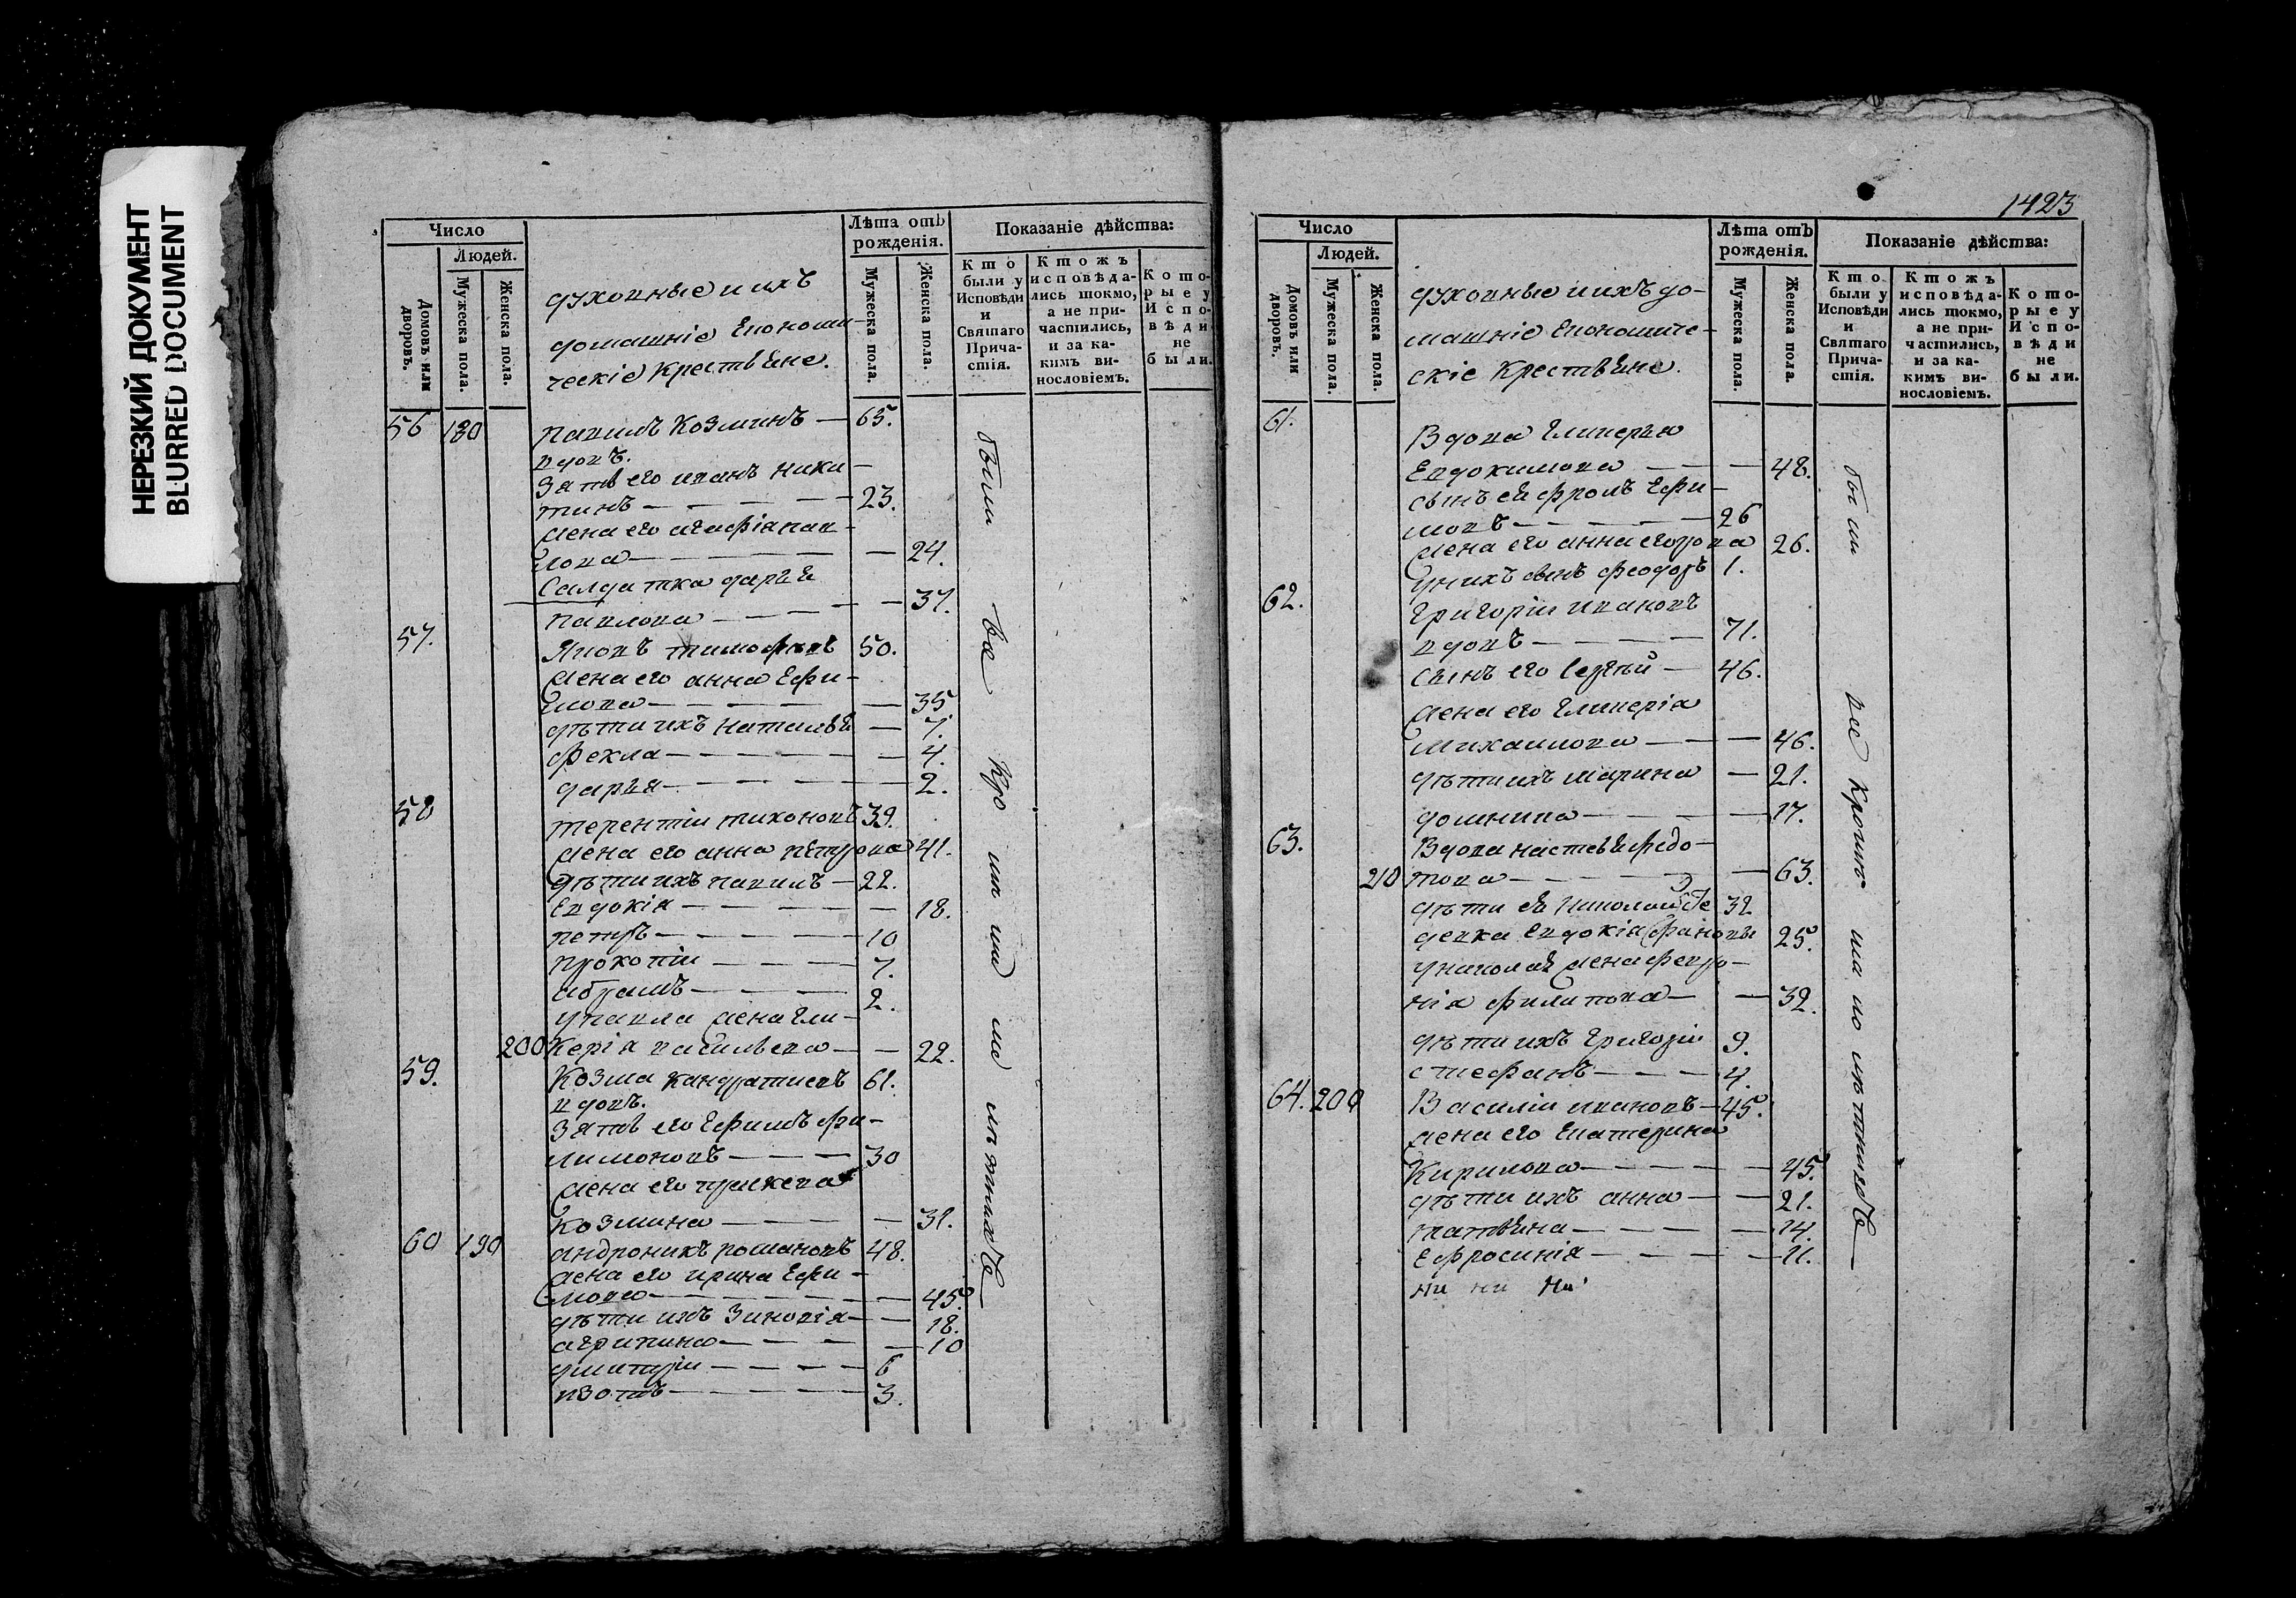 НЕРЕЗКИЙ ДОКУМЕНТ
BLURRED DOCUMENT
Число
Людей.
Домовъ или дворовъ.
Мужеска пола.
Женска пола.
духовные и ихъ
домашніе Економи-
ческіе крестьяне.
Лѣта отъ рожденія.
Мужеска пола.
Женска пола.
Показаніе дѣйства:
Кто были у Исповѣди и Святаго Причастія.
Ктожъ исповѣдались токмо, а не причастились, и за какимъ винословіемъ.
Которые у Исповѣди не были.
56 180 павилъ Козминъ — 65.
вдовъ.
Зять его иванъ ники-
тинъ — 23.
жена его агафія пав-
лова — 24.
Салдатка дарья
павлова — 37.
57. Яковъ тимофѣевъ 50.
жена его анна Ефи-
мова — 35
дѣти ихъ наталья — 7.
фекла — 4.
дарья — 2.
58 терентіи тихоновъ 39.
жена его анна петрова 41.
дѣти ихъ павилъ — 22.
Евдокія — 18.
петръ — 10
прокопіи — 7.
абрамъ — 2.
у павла жена гли-
200 керія васильева — 22.
59. Козма кандратиевъ 61.
вдовъ.
Зять его Ефимъ фи-
лимоновъ — 30
жена его
Козмина — 31.
60 190 андроникъ романовъ 48.
жена его ирина Ефи-
мова — 45.
дѣти ихъ Зиновія — 18.
агрипина — 10
дмитріи — 6
изотъ — 3.
были все кро мѣ ма лѣтныхъ
1423
Число
Людей.
Домовъ или дворовъ.
Мужеска пола.
Женска пола.
духовные и ихъ до-
машніе Економиче-
скіе крестьяне.
Лѣта отъ рожденія.
Мужеска пола.
Женска пола.
Показаніе дѣйства:
Кто были у Исповѣди и Святаго Причастія.
Ктожъ исповѣдались токмо, а не причастились, и за какимъ винословіемъ.
Которые у Исповѣди не были.
61. Вдова гликерья
Евдокимова — 48.
сынъ ея фролъ Ефи-
мовъ — 26
жена его анна егорова 26.
у нихъ сынъ феодоръ 1.
62. григоріи ивановъ
вдовъ — 71.
сынъ его Сергѣй — 46.
жена его гликерія
михаилова — 46.
дѣти ихъ марина — 21.
домника — 17.
63. Вдова настасья федо-
210 това — 63.
дѣти ея Николай 32
девка Евдокія 25.
у николая жена февро-
нія филипова — 32.
дѣти ихъ григоріи 9.
стефанъ — 4.
64. 200 Василіи ивановъ — 45.
жена его Екатерина
Кирилова — 45.
дѣти ихъ анна — 21.
татьяна — 14.
Ефросинія — 11.
ни ни ни
были все кромѣ ма ло лѣтныхъ